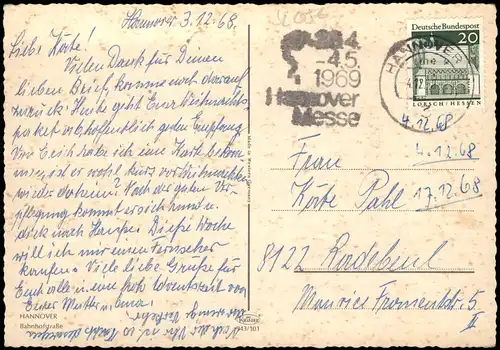 Hannover 3.12.68.
Liebe Körte!
Vielen Dank für Deinen
lieben Brief, komme noch darauf
zurück. Heute geht Euer Weihnachts
paket ab, hoffentlich guten Empfang.
Von E habe ich eine Karte bekom
men, ist er wohl kurz vor Weihnachten
wieder daheim? Nach der guten Ver
pflegung kommt er sich hund u.
dick nach Hause. Diese Woche
will ich mir einen Fernseher
kaufen. Viele liebe Grüße für
Euch alle u. eine frohe Adventszeit von
Eurer Mutter u. Oma!
HANNOVER
Bahnhofstraße
943/101
-4.5.
1969
Hannover
Messe
HANNOVER
Deutsche Bundespost
20
LORSCH/HESSEN
4.12.68
4.12.68
Frau
Körte Pahl
17.12.68
8122 Radebeul
Maurice Fromentstr. 5
II